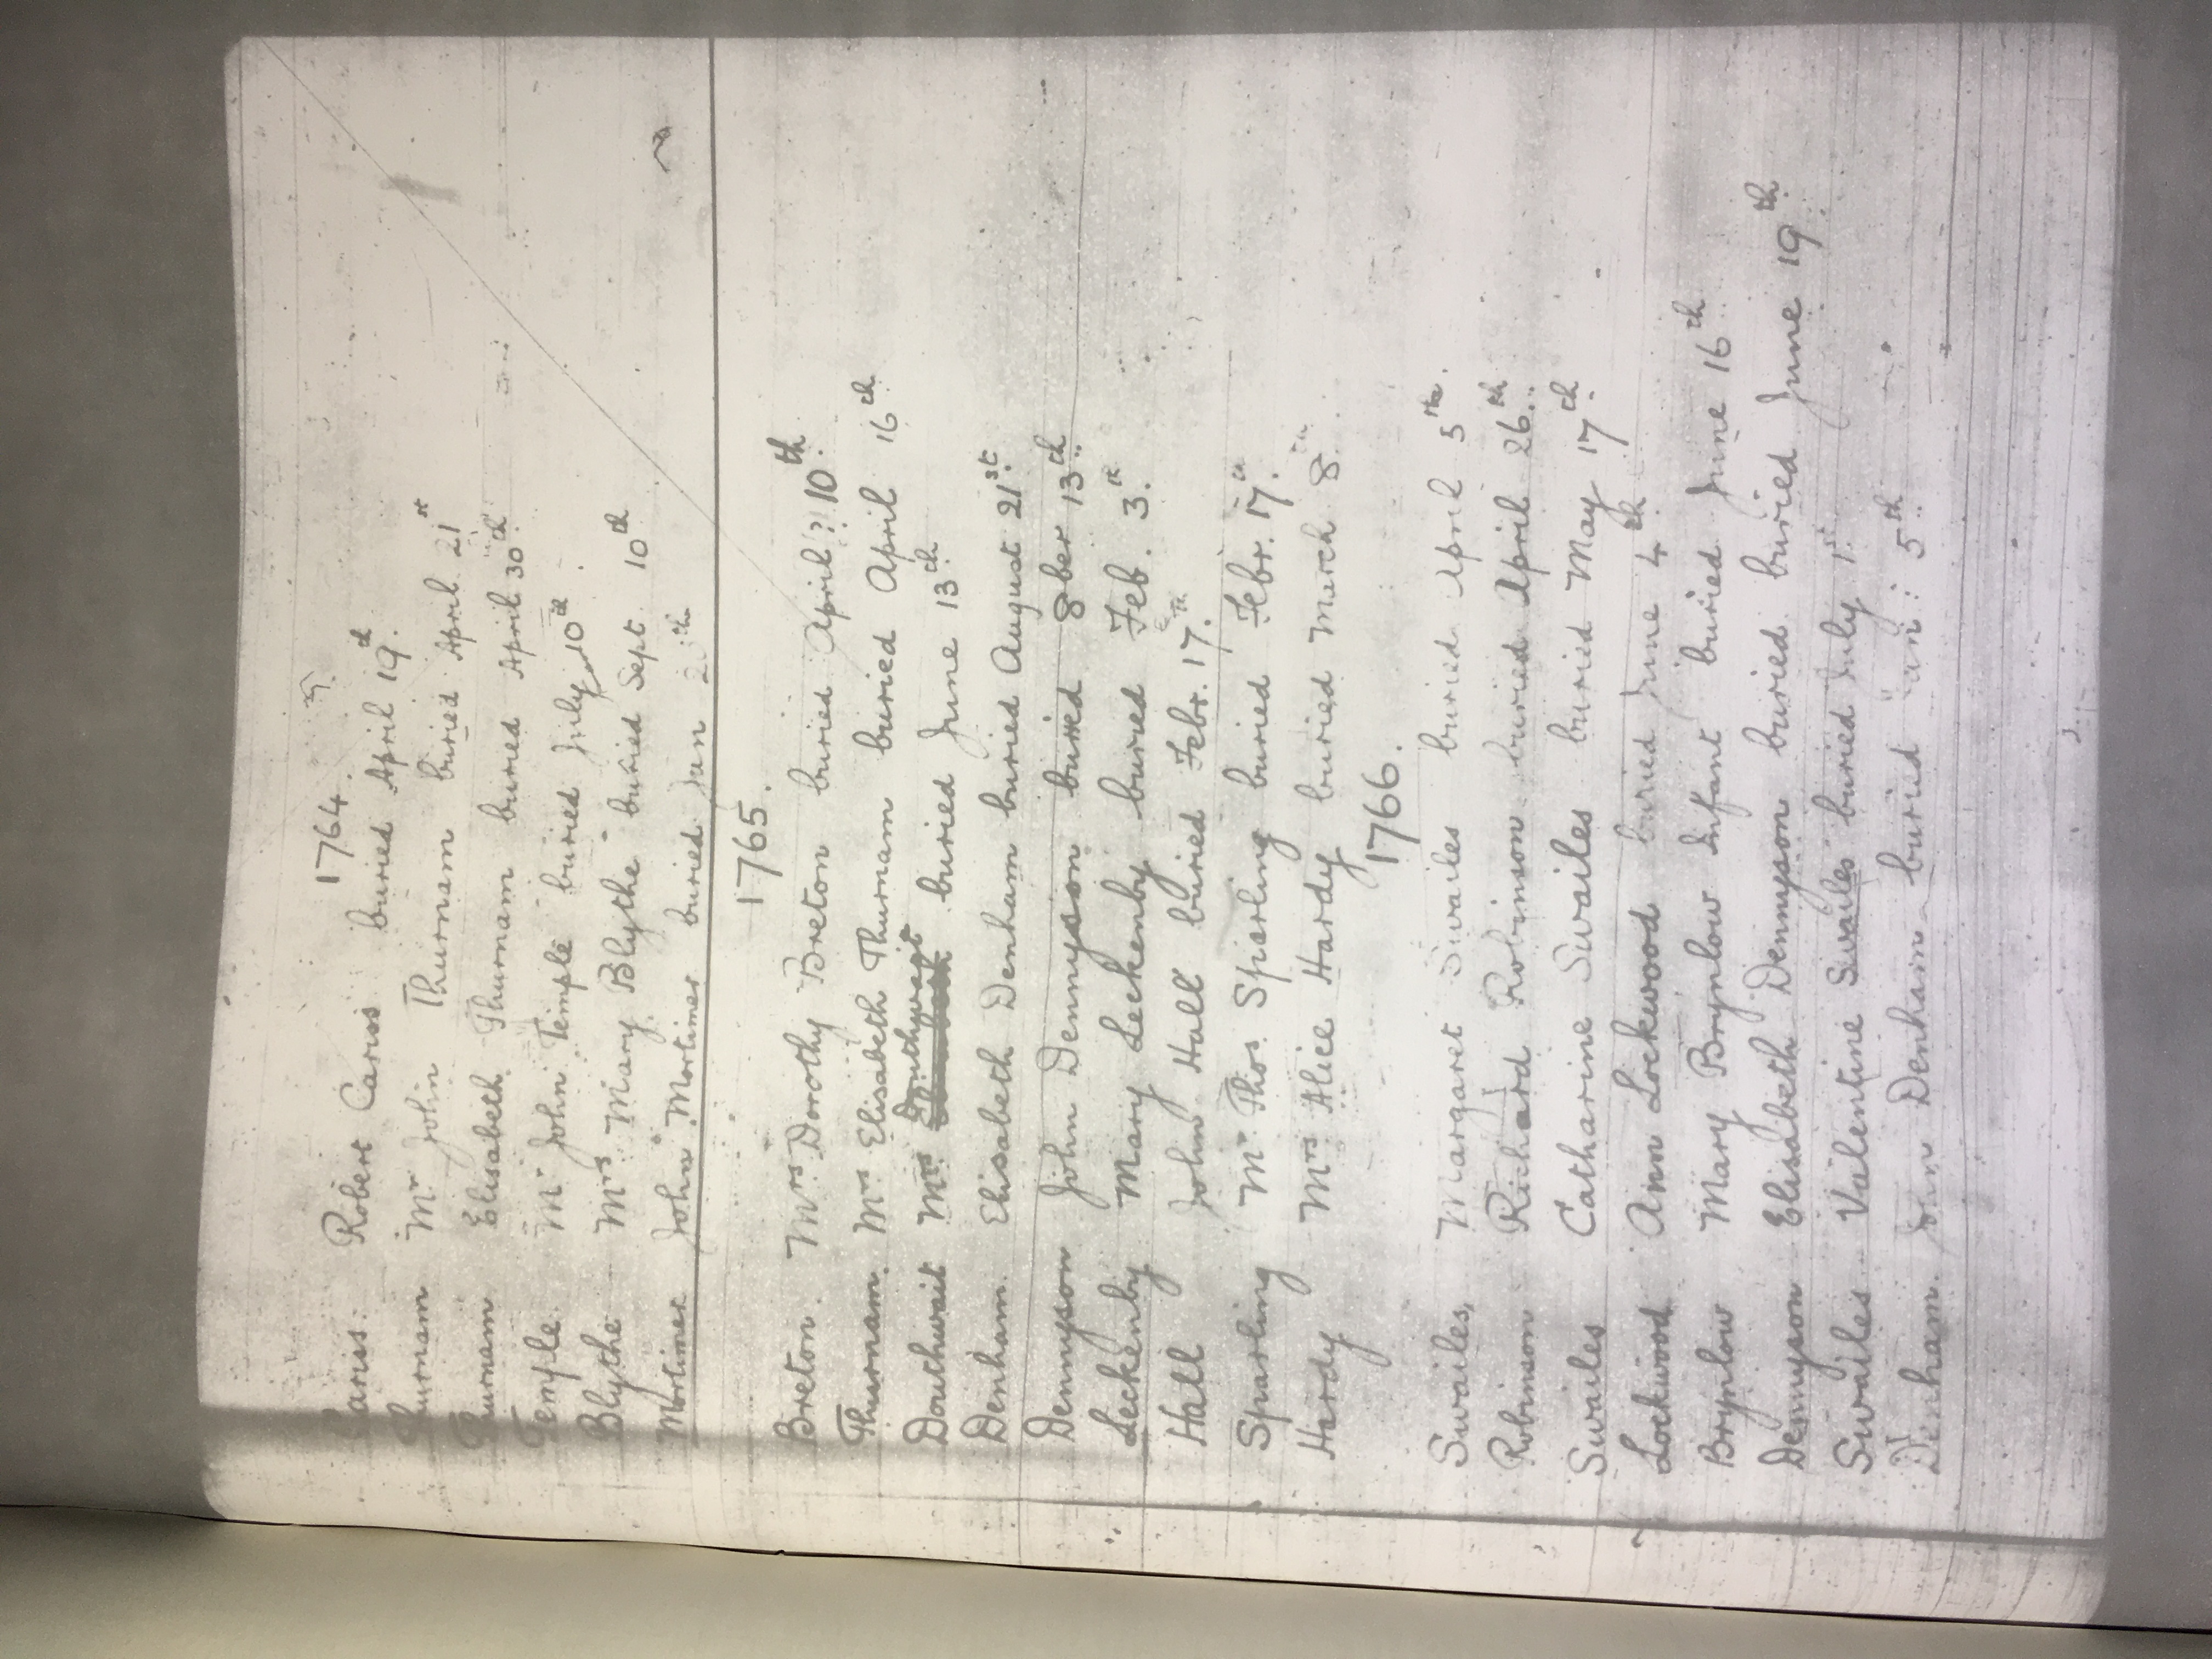 1764.
Cariss. Robert Cariss buried April 19th.
Thurnam Mr John Thurnam buried April 21st
Thurnam Elisabeth Thurnam buried April 30th
Temple Mr John Temple buried July 10th.
Blythe Mrs Mary Blythe buried Sept. 10th
Mortimer John Mortimer buried Jan
1765.
Breton. Mrs Dorothy Breton buried April ?? 10th.
Thurnam. Mrs Elisabeth Thurnam buried April 16th
Douthwait Mrs Douthwait buried June 13th
Denham. Elisabeth Denham buried August 21st.
Dennyson John Dennyson buried 8ber 13th
Leckenby Mary Leckenby buried Feb. 3rd.
Hall John Hall buried Febr. 17th.
Sparling Mr Thos. Sparling buried Febr. 17th.
Hardy Mrs Alice Hardy buried March 8th
1766.
Swailes, Margaret Swailes buried April 5th.
Robinson Richard Robinson buried April 26th.
Swailes Catharine Swailes buried May 17th
Lockwood Ann Lockwood buried June 4th
Brynlow Mary Brynlow Infant buried June 16th
Dennyson Elisabeth Dennyson buried June 19th
Swailes Valentine Swailes buried July 1st
Denham. John Denham buried 5th